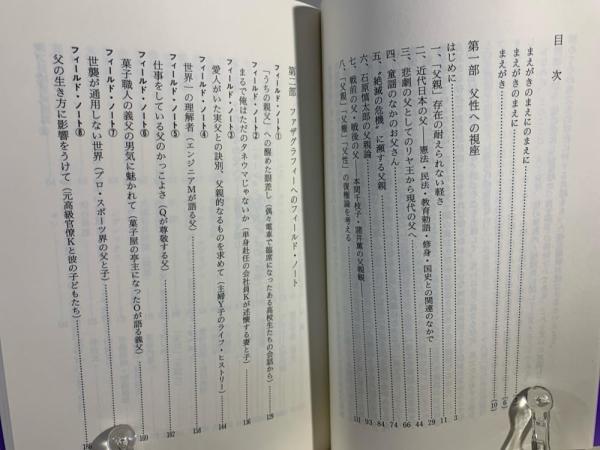 目次
まえがきのまえにのまえに
まえがきのまえに
まえがき (6)
(10)
第一部 父性への視座
はじめに 3
一、「父親」存在の耐えられない軽さ 11
二、近代日本の父――憲法・民法・教育勅語・修身・国史との関連のなかで 29
三、悲劇の父としてのリヤ王から現代の父へ 44
四、童謡のなかのお父さん 66
五、絶滅の危機に瀕する父親 74
六、石原慎太郎の父親論 84
七、戦前の父・戦後の父 本間千枝子・蘆井薫の父親観 93
八、「父親」「父権」「父性」の復権論を考える 111
第二部 ファザグラフィーへのフィールド・ノート
フィールド・ノート①
「うちの親父」への醒めた眼差し(偶々電車で臨席になったある高校生たちの会話から) 129
フィールド・ノート②
まるで俺はただのタネウマじゃないか(単身赴任の会社員Kが述懐する妻と子) 136
フィールド・ノート③
愛人がいた実父との訣別、父親的なるものを求めて(主婦Y子のライフ・ヒストリー) 144
フィールド・ノート④
世界一の理解者(エンジニアMが語る父) 138
フィールド・ノート⑤
仕事をしている父のかっこよさ(Qが尊敬する父) 147
フィールド・ノート⑥
菓子職人の義父の男気に魅かれて(菓子屋の亭主になったOが語る義父) 160
フィールド・ノート⑦
世襲が通用しない世界(プロ・スポーツ界の父と子)
フィールド・ノート⑧
父の生き方に影響をうけて(元高級官僚Kと彼の子どもたち)